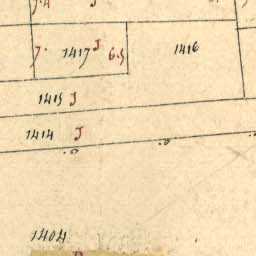 7. 1417 J 6.5 1416
1415 J
1414 J
1404